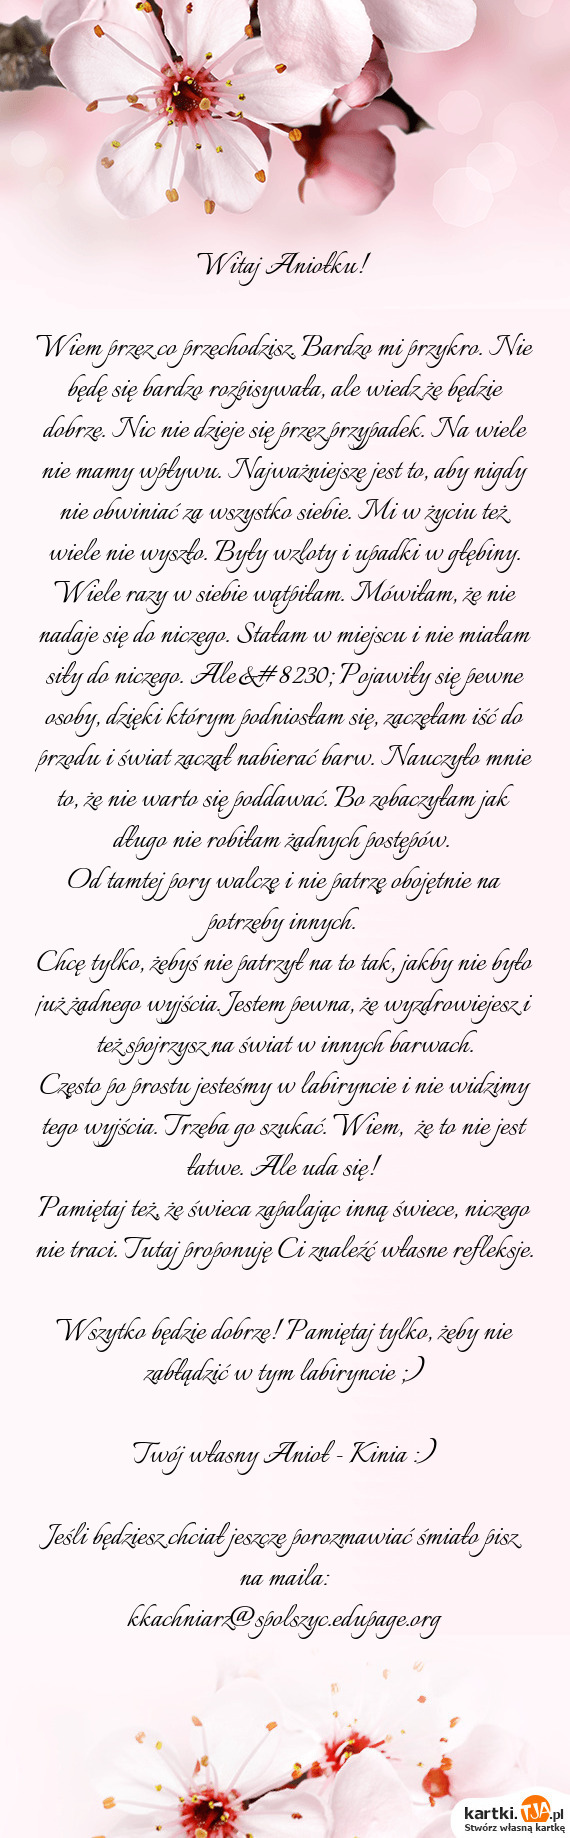 Witaj Aniołku!
Wiem przez co przechodzisz. Bardzo mi przykro. Nie
będę się bardzo rozpisywała, ale wiedz że będzie
dobrze. Nic nie dzieje się przez przypadek. Na wiele
nie mamy wpływu. Najważniejsze jest to, aby nigdy
nie obwiniać za wszystko siebie. Mi w życiu też
wiele nie wyszło. Były wzloty i upadki w głębiny.
Wiele razy w siebie wątpiłam. Mówiłam, że nie
nadaje się do niczego. Stałam w miejscu i nie miałam
siły do niczego. Ale&#8230; Pojawiły się pewne
osoby, dzięki którym podniosłam się, zaczęłam iść do
przodu i świat zaczął nabierać barw. Nauczyło mnie
to, że nie warto się poddawać. Bo zobaczyłam jak
długo nie robiłam żadnych postępów.
Od tamtej pory walczę i nie patrzę obojętnie na
potrzeby innych.
Chcę tylko, żebyś nie patrzył na to tak, jakby nie było
już żadnego wyjścia. Jestem pewna, że wyzdrowiejesz i
też spojrzysz na świat w innych barwach.
Często po prostu jesteśmy w labiryncie i nie widzimy
tego wyjścia. Trzeba go szukać. Wiem, że to nie jest
łatwe. Ale uda się!
Pamiętaj też, że świeca zapalając inną świece, niczego
nie traci. Tutaj proponuję Ci znaleźć własne refleksje.
Wszytko będzie dobrze! Pamiętaj tylko, żeby nie
zabłądzić w tym labiryncie ;)
Twój własny Anioł - Kinia :)
Jeśli będziesz chciał jeszcze porozmawiać śmiało pisz
na maila:
kkachniarz@spolszyc.edupage.org
kartki.TJA.pl
Stwórz własną kartkę